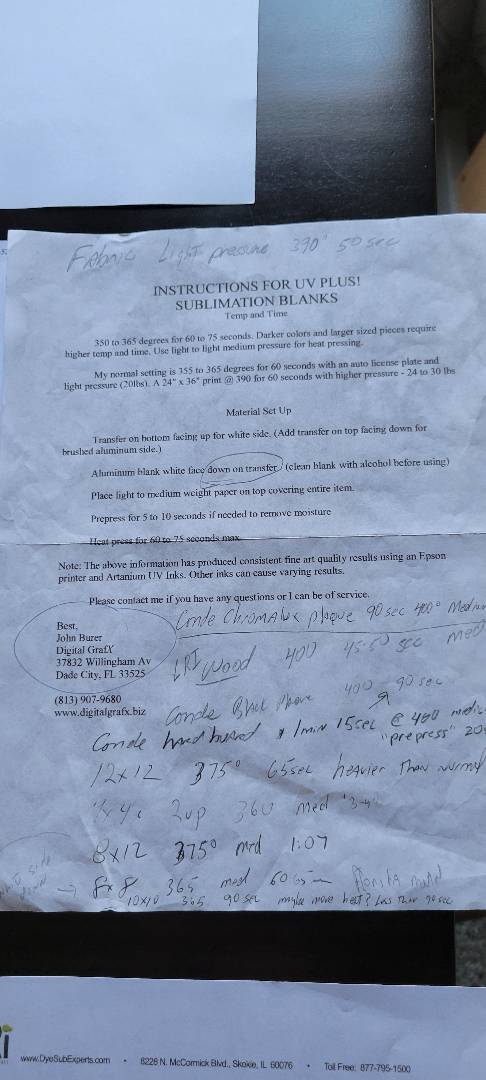 Fabric Light pressure 390° 50 sec
INSTRUCTIONS FOR UV PLUS!
SUBLIMATION BLANKS
Temp and Time
350 to 365 degrees for 60 to 75 seconds. Darker colors and larger sized pieces require
higher temp and time. Use light to light medium pressure for heat pressing.
My normal setting is 355 to 365 degrees for 60 seconds with an auto license plate and
light pressure (20lbs). A 24" x 36" print @ 390 for 60 seconds with higher pressure - 24 to 30 lbs
Material Set Up
Transfer on bottom facing up for white side. (Add transfer on top facing down for
brushed aluminum side.)
Aluminum blank white face down on transfer. (clean blank with alcohol before using)
Place light to medium weight paper on top covering entire item.
Prepress for 5 to 10 seconds if needed to remove moisture
Heat press for 60 to 75 seconds max.
Note: The above information has produced consistent fine art quality results using an Epson
printer and Artanium UV Inks. Other inks can cause varying results.
Please contact me if you have any questions or I can be of service.
Best,
John Burer
Digital GrafX
37832 Willingham Av
Dade City, FL 33525
(813) 907-9680
www.digitalgrafx.biz
Conde Chromalux plaque 90 sec 400° Medium
LRI Wood 400 45-50 sec med
Conde 400 90 sec
Conde hardboard 1 min 15 sec @ 400
"prepress" 20
12x12 375° 65 sec heavier than normal
2up 360 med
8x12 375° med 1:07
8x8 365 med 60
10x10 365 90 sec maybe more heat? Less than 90 sec
www.DyeSubExperts.com • 8228 N. McCormick Blvd., Skokie, IL 60076 • Toll Free: 877-795-1500